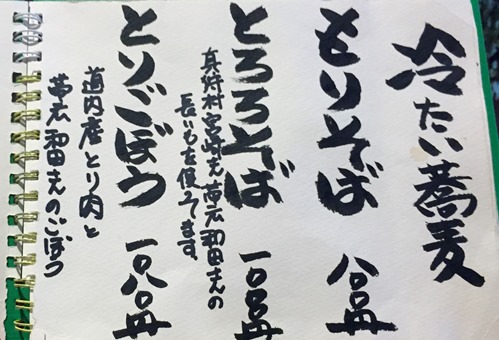 冷たい蕎麦
もりそば 八〇〇円
とろろそば 一〇〇〇円
真狩村宮崎さん帯広和田さんの
長いもを使ってます。
とりごぼう 一〇八〇円
道内産とり肉と
帯広和田さんのごぼう